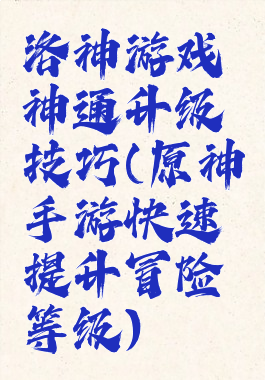 洛神游戏
神通升级
技巧(原神
手游快速
提升冒险
等级)